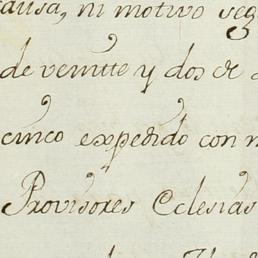 causa, ni motivo seg
de veintte y dos de
cinco expedido con
Provisores Eclesias